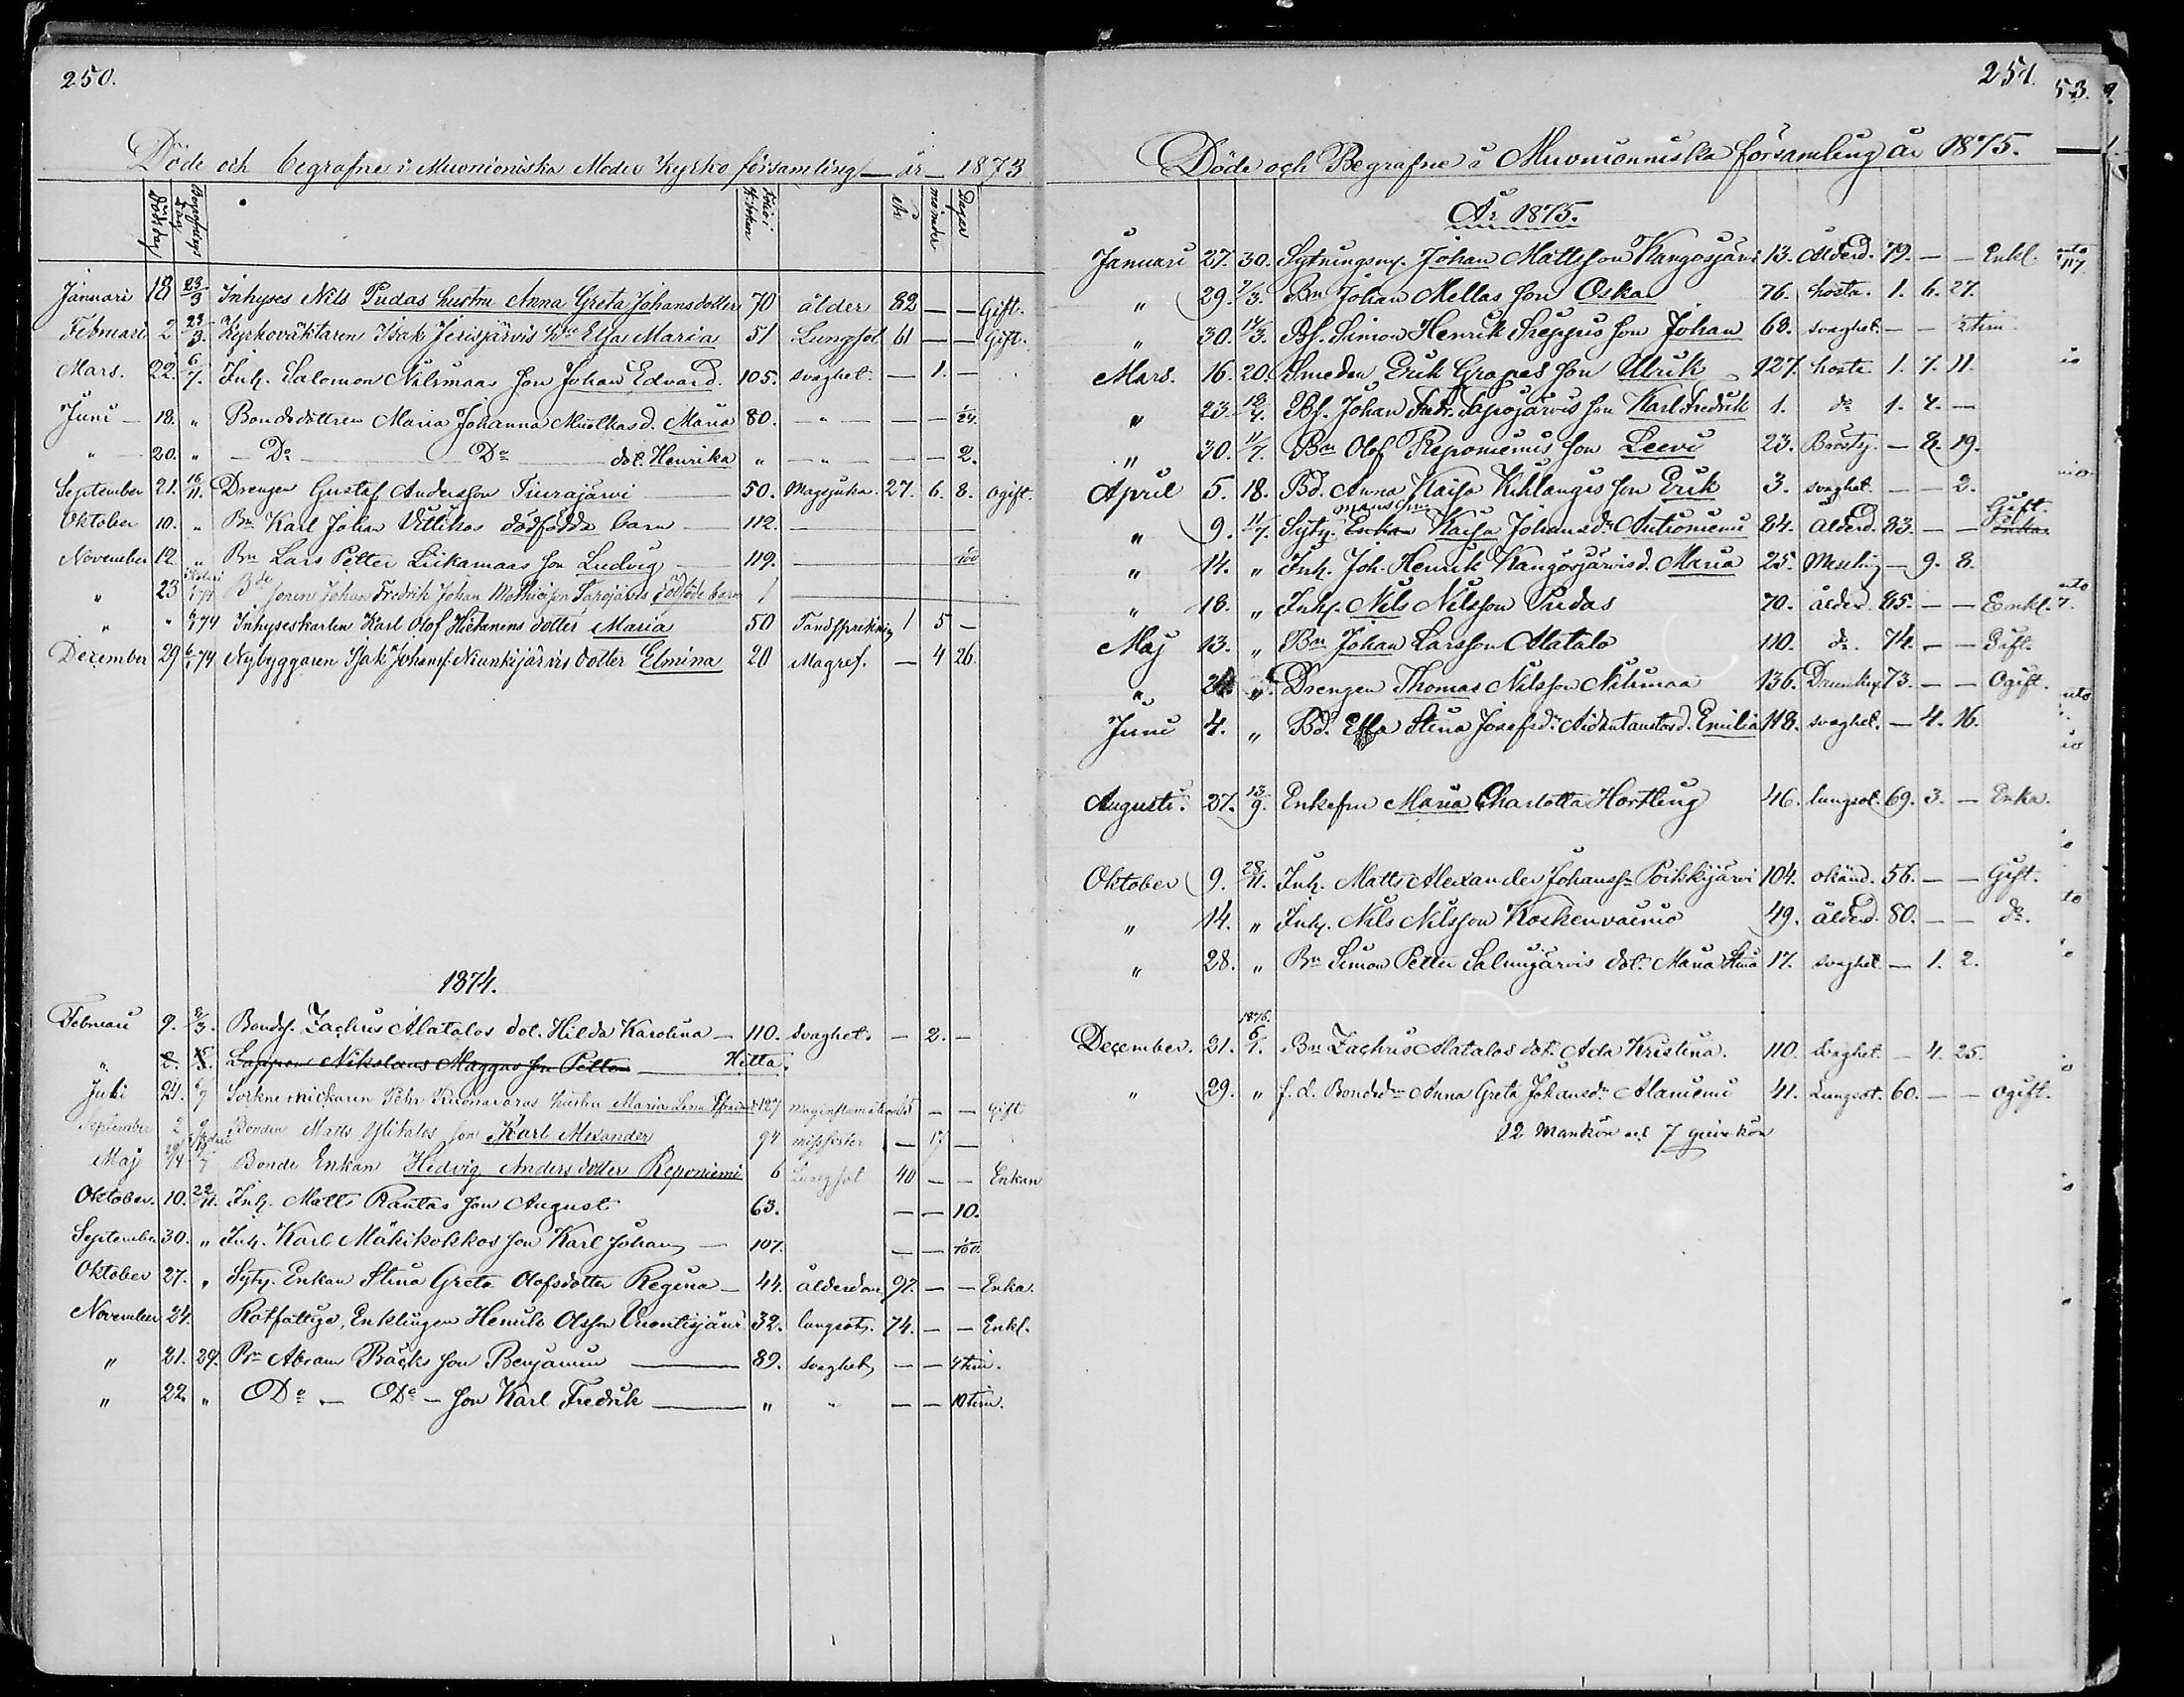 250.
Döde och begrafne i Muonioniska Moder Kyrko församling — år — 1873
Död dag Begrafnings dag Folio i K. boken År månader Dagar
Januari 18 23/3 Inhyses Nils Pudas hustru Anna Greta Johansdotter 70 ålder 82 — — Gift.
Februari 2 23/3. Kyrkoväktaren Isak Jerisjärvis h:ru Elsa Maria 51 Lungsot 61 — — Gift.
Mars. 22. 6/7. Inh. Salomon Nilimaas son Johan Edvard. 105. svaghet. — 1. —
Juni — 18. " Bondedottren Maria Johanna Muotkas d. Maria 80. — " — — — 1/24.
" — 20. " — Do — Do — dot. Henrika " — " — — — 2.
September 21. 16/11. Drengen Gustaf Andersson Tiurajärvi — 50. Magsjuka. 27. 6. 8. ogift.
Oktober 10. " Bn Karl Johan Vittikos dödfödda barn — 112. —
November 12. " Bn Lars Petter Liikamaas son Ludvig — 119. — 1/00
" 23 Bde sonen Johan Fredrik Johan Mathiesson Tapojärvis dödföde barn 1 —
" " 6/1 74 Inhyseskarlen Karl Olof Hietanens dotter Maria 50 Tandsprickning 1 5 —
December 29 6/1 74 Nybyggaren Isak Johans. Niunkijärvis dotter Elmina 20 Magref. — 4 26.
1874.
Februari 9. 8/3. Bonds. Zachris Alatalos dot. Hilda Karolina — 110. svaghet. — 2. —
" 2. Lappen Nikolaus Maggas son Petter — Hitta.
Juli 24. 6/9 Sockne snickaren Pehr Kuonavaras hustru Maria Lena 127 maginflamation — — Gift
September 2 Bonden Matts Ylitalos son Karl Alexander 94 misfoster — —
Maj 14 /7 Bonde Enkan Hedvig Anders dotter Reponiemi 6 Lungsot 40 — — Enkan
Oktober. 10. 22/11. Inh. Matts Rantas son August 63. — — 10.
September 30. " Inh. Karl Mäkikokkos son Karl Johan — 107. — — 1/00.
Oktober 27. " Sytn. Enkan Stina Greta Olofsdotter Regina — 44. ålderdom 92. — — Enka.
November 24. Rotfattige, Enklingen Henrik Olsson Vuontisjärvi 32. lungsot. 74. — — Enkl.
" 21. 29. Bn Abram Bäcks son Benjamin — 89. svaghet — — 4 tim.
" 22. " Do — Do — son Karl Fredrik — " " — — 10 tim.
251.
Döde och Begrafne i Muonionniska församling år 1875.
År 1875.
Januari 27. 30. Sytningsm. Johan Mattsson Kangosjärvi 13. ålderd. 79. — — Enkl.
" 29. 7/3. Bn Johan Mellas son Oskar 76. hosta. 1. 6. 27.
" 30. 14/3. Bs. Simon Henrik Seppis son Johan 68. svaghet. — — 1/2 tim.
Mars. 16. 20. Smeden Erik Grapes son Ulrik 127. hosta. 1. 7. 11.
" 23. 18/4. Bs. Johan Fredr. Tapojärvis son Karl Fredrik 1. do 1. 4. —
" 30. 11/7. Bn Olof Reponiemis son Leevi 23. Bröstsj. — 8. 19.
April 5. 18. Bd. Anna Kaisa Kihlangis son Erik 3. svaghet. — — 2.
" 9. 11/7. Sytn. Enkan Kaisa Johansdr Autioniemi 84. ålderd. 83. — — Gift. Enka.
" 14. " Inh. Joh. Henrik Kangosjärvis d. Maria 25. Mesling — 9. 8.
" 18. " Inh. Nils Nilsson Pudas 70. ålder. 85. — — Eenkl.
Maj 13. " Bn Johan Larsson Alatalo 110. do. 74. — — Gift.
" 24. " Drengen Thomas Nilsson Nilimaa 136. Drunkn. 73. — — Ogift.
Juni 4. " Bd. Elsa Stina Josefsdr. Aidantaustas d. Emilia 118. svaghet. — 4. 16.
Augusti. 27. 13/9. Enkefru Maria Charlotta Hortling 46. lungsot. 69. 3. — Enka.
Oktober 9. 28/11. Inh. Matts Alexander Johanssn Poikkijärvi 104. okänd. 56. — — Gift.
" 14. " Inh. Nils Nilsson Koskenvainio 49. ålderd. 80. — — do.
" 28. " Bn Simon Petter Salmijärvis dot. Maria Stina 17. svaghet — 1. 2.
1876.
December. 21. 6/1. Bn Zachris Alatalos dot. Ada Kristina. 110. Svaghet. — 4. 25.
" 29. " f. d. Bondedr Anna Greta Johansdr Alaniemi 41. Lungsot. 60. — — ogift.
12 mankön och 7 qvinkön
53.